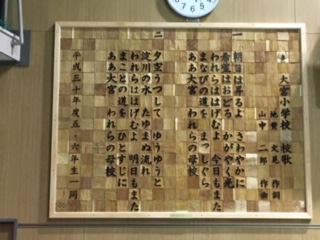 大宮小学校 校歌
作詞
山中 二郎 作曲
一 朝日はるよ さわやかに
希望はおどる かがやく光
われらははげむよ 今日もまた
まなびの道を まっしぐら
ああ大宮 われらの母校
二 夕空うつして ゆうゆうと
淀川の水 たゆまぬ流れ
われらははげむよ 明日もまた
まことの道を ひとすじに
ああ大宮 われらの母校
平成三十年度五・六年生一同